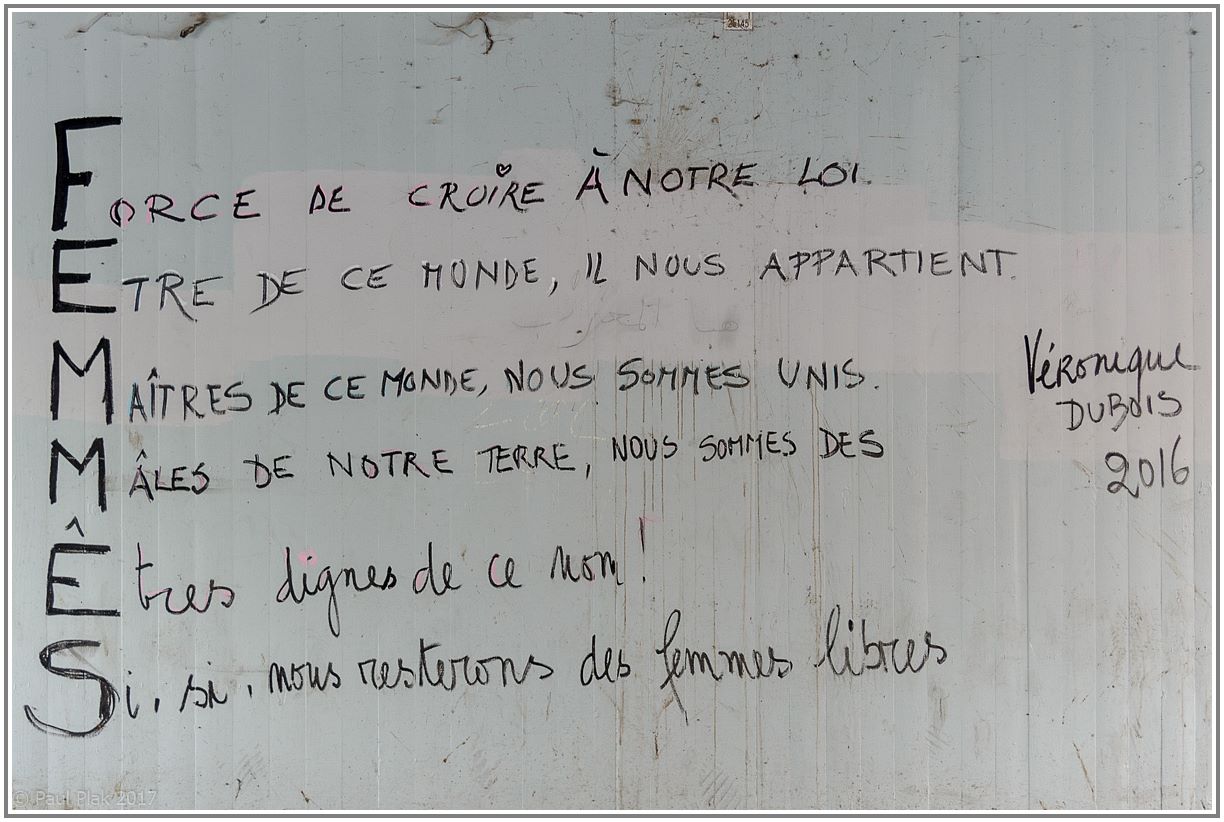 FORCE DE CROIRE À NOTRE LOI.
ETRE DE CE MONDE, IL NOUS APPARTIENT.
MAÎTRES DE CE MONDE, NOUS SOMMES UNIS.
MÂLES DE NOTRE TERRE, NOUS SOMMES DES
Êtres dignes de ce nom !
Si, si, nous resterons des femmes libres
Véronique
DUBOIS
2016
© Paul Plak 2017